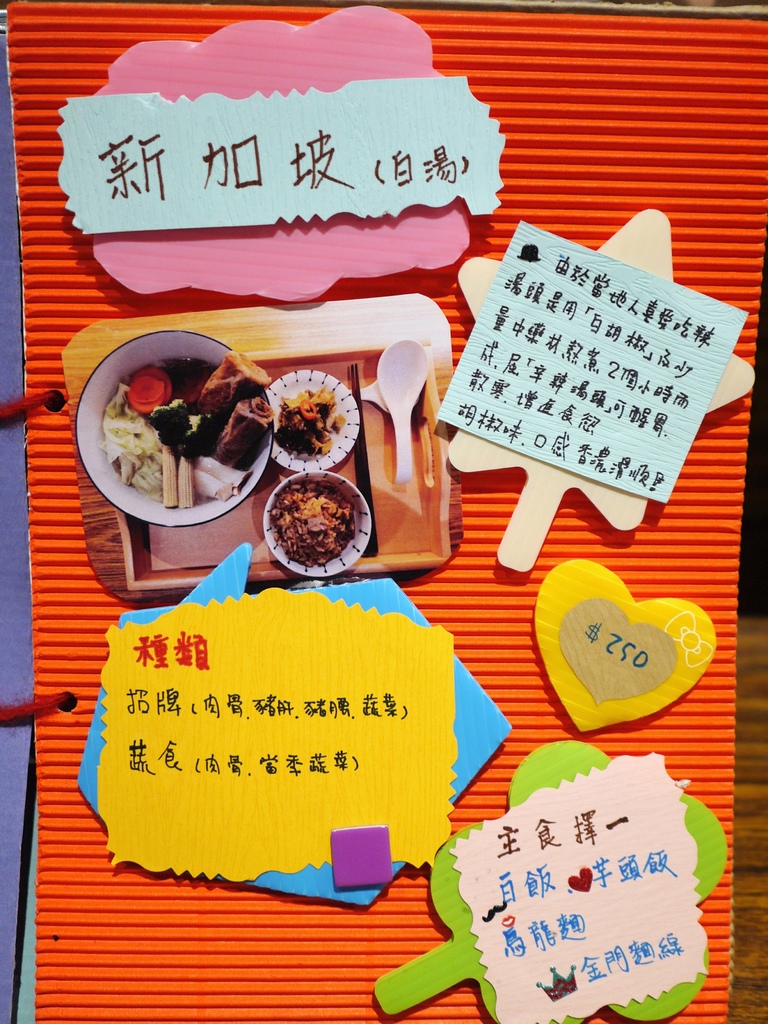 新加坡(白湯)
由於當地人喜愛吃辣
湯頭是用「白胡椒」及少
量中藥材熬煮2個小時而
成,屆「辛辣湯頭」可醒胃.
散寒.增進食慾
胡椒味.口感香濃滑順!!
種類
招牌(肉骨.豬肝.豬腰.蔬菜)
蔬食(肉骨.當季蔬菜)
$250
主食擇一
白飯、芋頭飯
烏龍麵
金門麵線